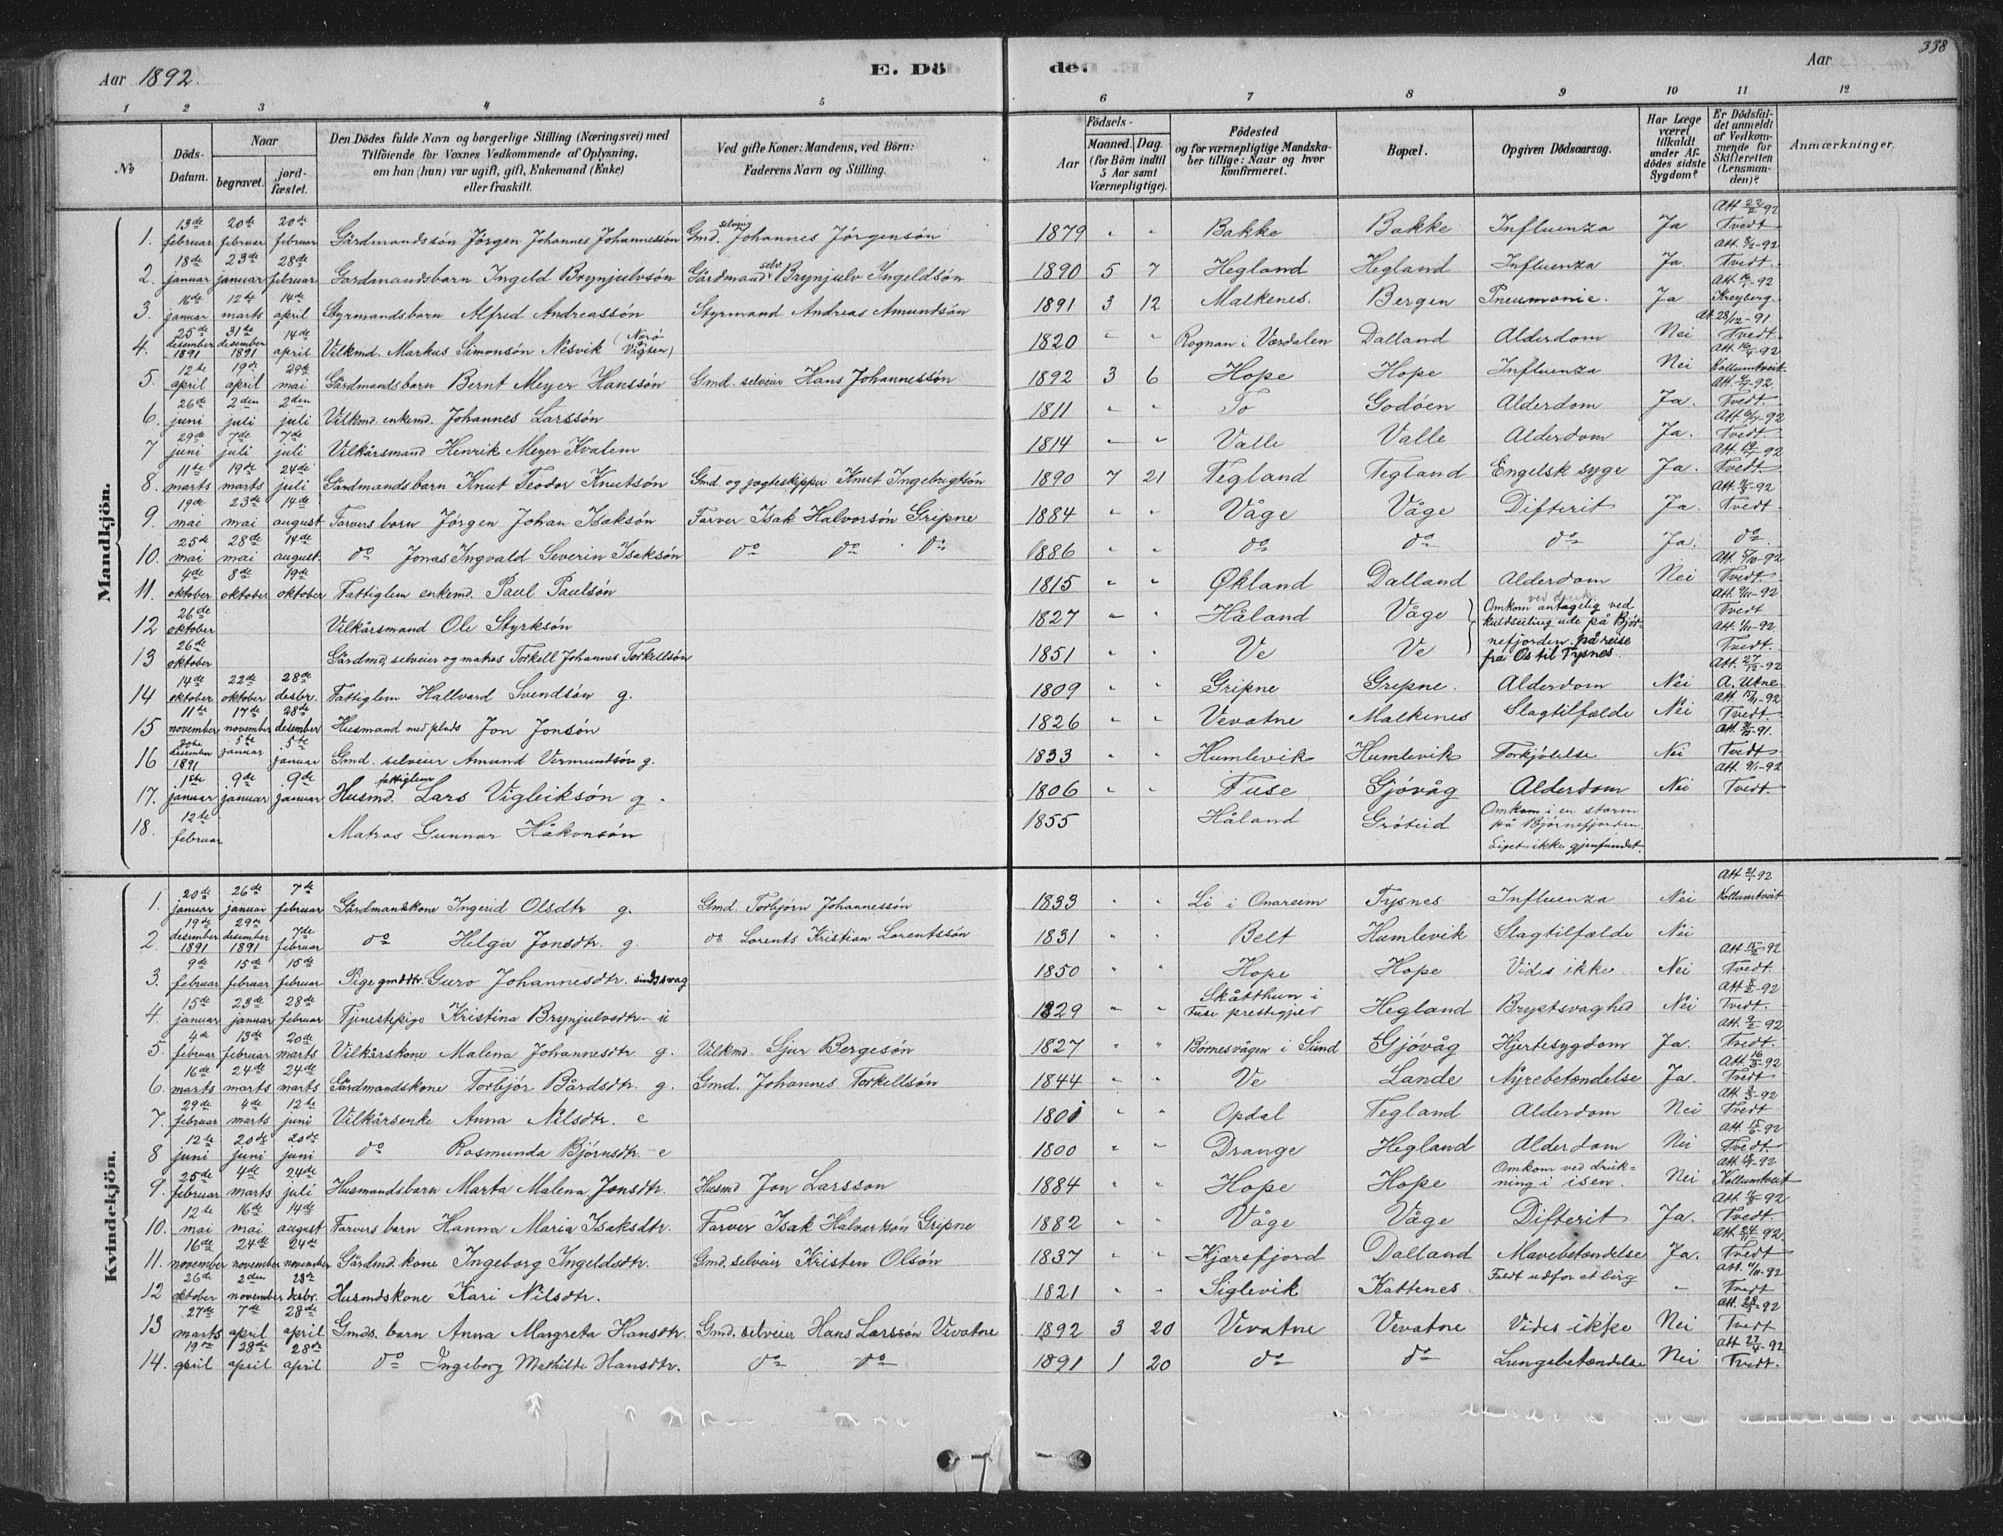 338
Aar 1892. E. Döde. Aar
1 2 3 4 5 6 7 8 9 10 11 12
No Döds-Datum. Naar begravet. jordfæstet. Den Dödes fulde Navn og borgerlige Stilling (Næringsvei) med Tilföiende for Voxnes Vedkommende af Oplysning, om han (hun) var ugift, gift, Enkemand (Enke) eller fraskilt. Ved gifte Koner: Mandens, ved Börn: Faderens Navn og Stilling. Födsels- Aar Maaned. Dag. (for Börn indtil 5 Aar samt Værnepligtige). Födested og for værnepligtige Mandskaber tillige: Naar og hvor konfirmeret. Bopæl. Opgiven Dödsaarsag. Har Læge været tilkaldt under Afdödes sidste Sygdom? Er Dödsfaldet anmeldt af Vedkommende for Skifteretten (Lensmanden)? Anmærkninger.
Mandkjön.
1. 13de februar 20de februar 20de februar Gårdmandssön Jörgen Johannes Johannessön Gmd. selveier Johannes Jörgensön 1879 " " Bakke Bakke Influenza Ja Att 22/2 92 Tvedt.
2. 18de januar 23de januar 28de februar Gårdmandsbarn Ingeld Brynjulvsön Gårdmand selv. Brynjulv Ingeldsön 1890 5 7 Hegland Hegland Influenza Ja. Tvedt.
3. 16de januar 12te marts 14de april Styrmandsbarn Alfred Andreassön Styrmand Andreas Amundsön 1891 3 12 Malkenes. Bergen Pneumonie. Ja Kreyberg.
4. 25de desember 1891 31te desember 1891 14de april Vilkmd. Markus Simonsön Nesvik (Norö Vigten) 1820 " " Rognan i Værdalen Dalland Alderdom Nei At 28/12-91 Tvedt.
5. 12te april 19de april 29de mai Gårdmandsbarn Bernt Meyer Hanssön Gmd. selveier Hans Johannessön 1892 3 6 Hope Hope Influenza Nei Kollumtveit
6. 26de juni 2den juli 2den juli Vilkmd enkemd. Johannes Larssön 1811 " " To Godöen Alderdom Ja. Tvedt.
7 29de juni 7de juli 7de juli Vilkårsmand Henrik Meyer Kvalem 1814 " " Valle Valle Alderdom Ja. Tvedt.
8. 11te marts 19de marts 24de juli Gårdmandsbarn Knut Teodor Knutsön Gmd og jagteskipper Knut Ingebrigtsön 1890 7 21 Tegland Tegland Engelsk syge Ja. Tvedt
9. 19de mai 23de mai 14de august Farvers barn Jörgen Johan Isaksön Farver Isak Halvorsön Gripne 1884 " " Våge Våge Difterit Ja. Tvedt
10. 25de mai 28de mai 14de august do Jonas Ingvald Severin Isaksön do do do 1886 " " do do do Ja. do.
11. 4de oktober 8de oktober 19de oktober Fattiglem enkemd. Paul Paulsön 1815 " " Økland Dalland Alderdom Nei Tvedt
12 26de oktober Vilkårsmand Ole Styrksön 1827 " " Håland Våge Omkom antagelig ved druk. ved kuldseiling ude på Björnefjorden på reise fra Os til Tysnes. Tvedt
13 26de oktober Gårdmd. selveier og matros Torkell Johannes Torkellsön 1851 " " Ve Ve Tvedt.
14 14de oktober 22de oktober 28de desbr. Fattiglem Hallvard Svendsön g. 1809 " " Gripne Gripne. Alderdom Nei Att. 27/12-92 A. Utne.
15 11te november 17de november 28de desember Husmand med plads Jon Jonsön 1826 " " Vevatne Malkenes Slagtilfælde Nei Tvedt.
16 desember 1891 5te januar 5te januar Gmd. selveier Amund Vermundsön g. 1833 " " Humlevik Humlevik Forkjölelse Nei Tvedt
17. 1ste januar 9de januar 9de januar Husmd. fattiglem Lars Vigleiksön g. 1806 " " Fuse Gjövåg Alderdom Nei Att. 9/1-92 Tvedt.
18. 12te februar Matros Gunnar Håkonsön 1855 Håland Gröteid Omkom i en storm på Björnefjorden. Liget ikke gjenfundet.
Kvindekjön.
1. 20de januar 26de januar 7de februar Gårdmandskone Ingerid Olsdtr g. Gmd. Torbjörn Johannessön 1833 " " Li i Onareim Tysnes Influenza Nei Att 21/1 92 Kollumtveit
2. 19de desember 1891 29de desember 1891 7de februar do Helga Jonsdtr. g. do Lorents Kristian Lorentssön 1831 " " Belt Humlevik Slagtilfælde Nei
3. 9de februar 15de februar 15de februar Pige gmddtr. Guro Johannesdtr. sindssvag 1850 " " Hope Hope Vides ikke. Nei Att 15/2-92 Tvedt.
4. 15de januar 23de januar 28de februar Tjenestepige Kristina Brynjulvsdtr. u 1829 Skåtthun i Fuse prestegjeld Hegland Brystsvaghed Nei Tvedt.
5. 4de februar 13de februar 20de marts Vilkårskone Malena Johannesdtr g. Vilkmd. Sjur Bergesön 1827 " " Börnesvågen i Sund Gjövåg Hjertesygdom Ja. Att. 9/2 92 Tvedt.
6. 16de marts 24de marts 24de marts Gårdmandskone Torbjör Bårdsdtr. g. Gmd. Johannes Torkellsön 1844 " " Ve Lande Nyrebetændelse Ja. Att 16/3-92 Tvedt
7. 29de februar 4de marts 12te juni Vilkårsenke Anna Nilsdtr. e 1801 " " Opdal Tegland Alderdom Nei Tvedt
8 12te juni 20de juni 20de juni do Rasmunda Björnsdtr. e 1800 " " Drange Hegland Alderdom Nei Att. 15/6-92 Tvedt.
9. 25de februar 4de marts 24de juli Husmandsbarn Marta Malena Jonsdtr. Husmd Jon Larsson 1884 " " Hope Hope Omkom ved drukning i isen. Nei Kollumtveit
10. 12te mai 16de mai 14de august Farvers barn Hanna Maria Isaksdtr. Farver Isak Halvorsön Gripne 1882 " " Våge Våge Difterit Ja. Tvedt.
11. 16de november 24de november 24de november Gårdmd. kone Ingeborg Ingeldsdtr. Gmd. selveier Kristen Olsön 1837 " " Kjærefjord Dalland Mavebetændelse Ja. Tvedt
12 26de oktober 2den november 28de desbr. Husmdskone Kari Nilsdtr. 1821 " " Siglevik Kattenes Faldt udfor et berg – Tvedt
13 27de marts 7de april 28de april Gmds. barn Anna Margreta Hansdtr. Gmd. selveier Hans Larssön Vevatne 1892 3 20 Vevatne Vevatne Vides ikke Nei Tvedt.
14. 19de april 28de april 28de april do Ingeborg Mathilde Hansdtr. do do 1891 1 20 do do Lungebetændelse Nei Att 27/4-92 Tvedt.